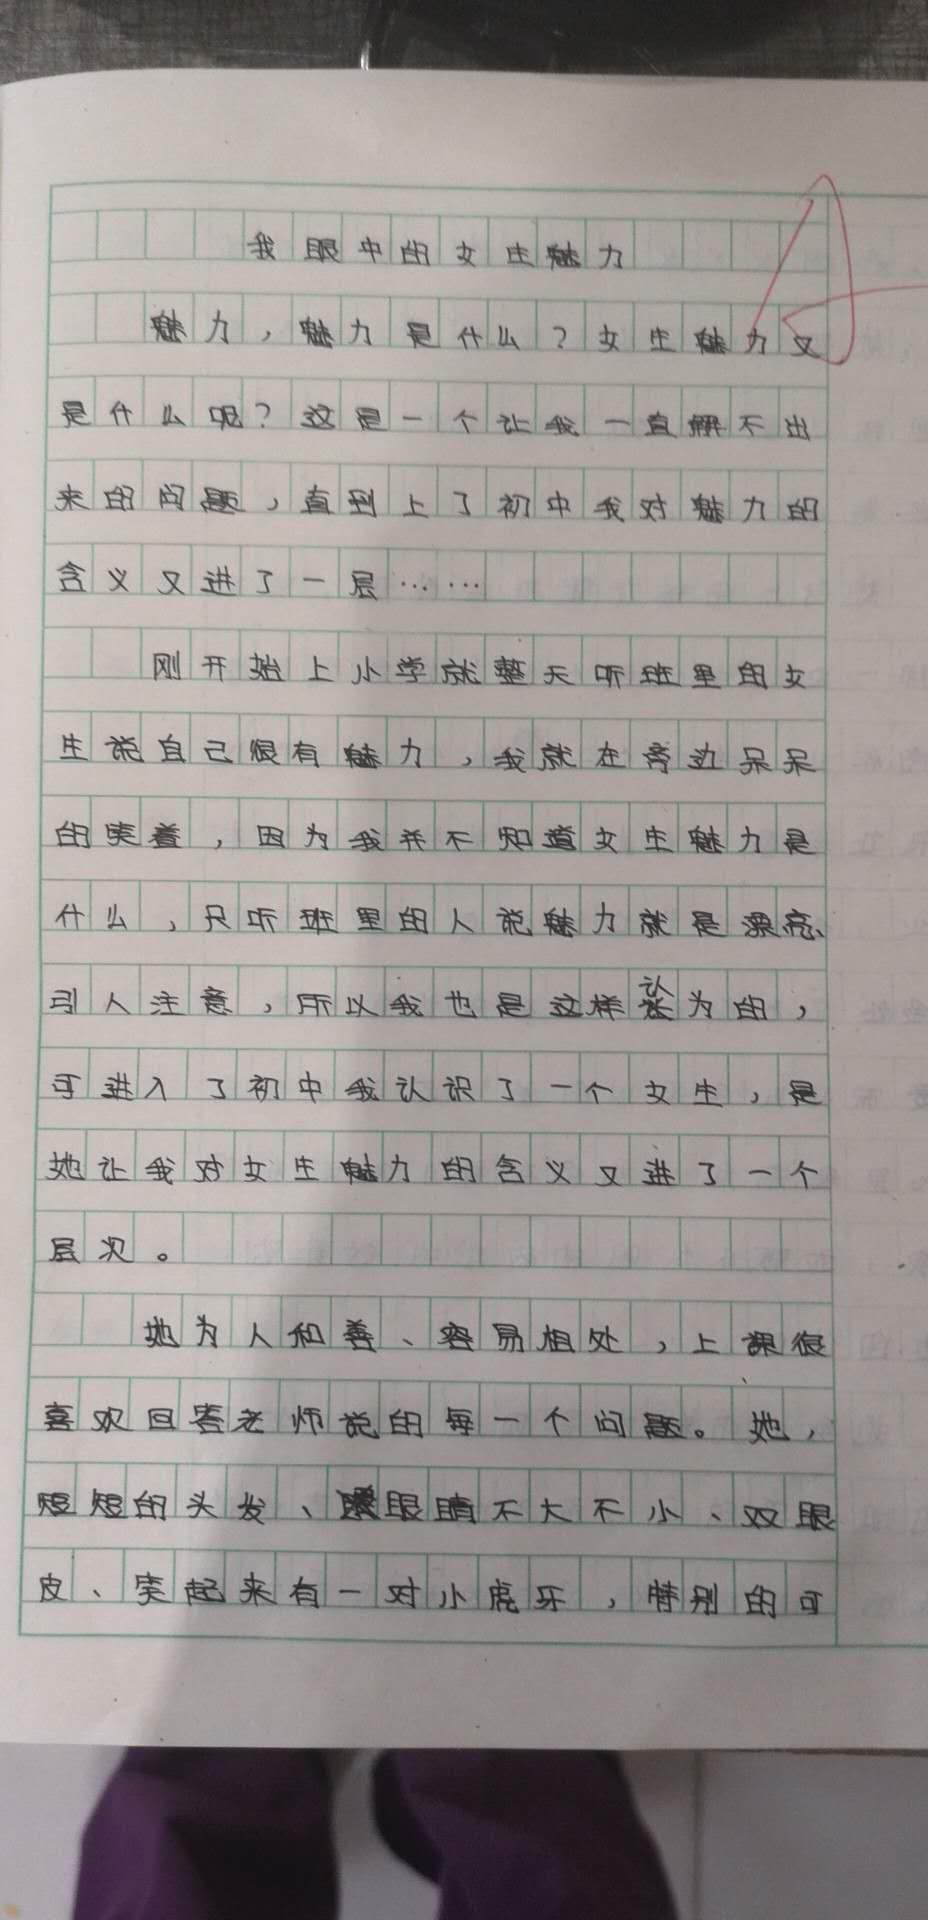 我眼中的女生魅力
魅力，魅力是什么？女生魅力又
是什么呢？这是一个让我一直解不出
来的问题，直到上了初中我对魅力的
含义又进了一层……
刚开始上小学就整天听班里的女
生说自己很有魅力，我就在旁边呆呆
的笑着，因为我并不知道女生魅力是
什么，只听班里的人说魅力就是漂亮、
引人注意，所以我也是这样认为的，
可进入了初中我认识了一个女生，是
她让我对女生魅力的含义又进了一个
层次。
她为人和善、容易相处，上课很
喜欢回答老师说的每一个问题。她，
短短的头发、眼睛不大不小、双眼
皮、笑起来有一对小虎牙，特别的可